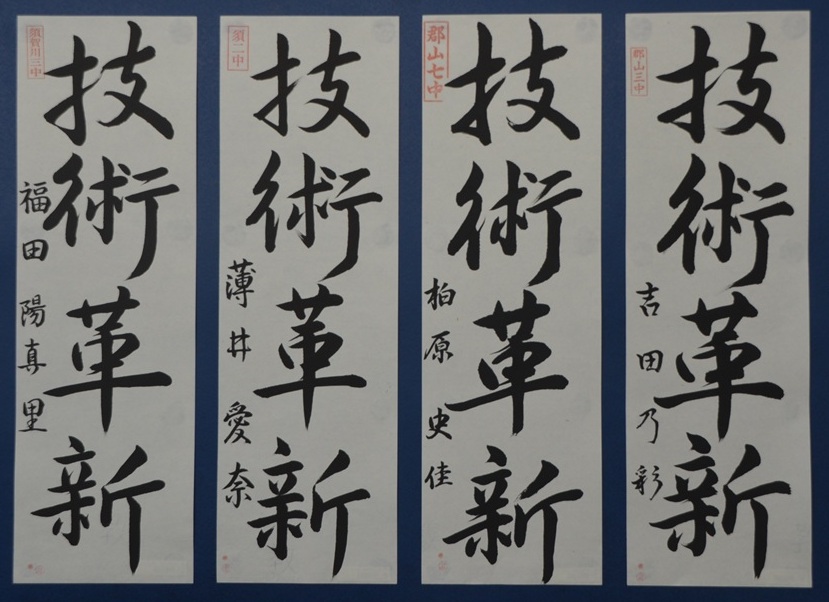 郡山三中
技術革新
吉田乃彩
郡山七中
技術革新
柏原史佳
須二中
技術革新
薄井愛奈
須賀川三中
技術革新
福田陽真里